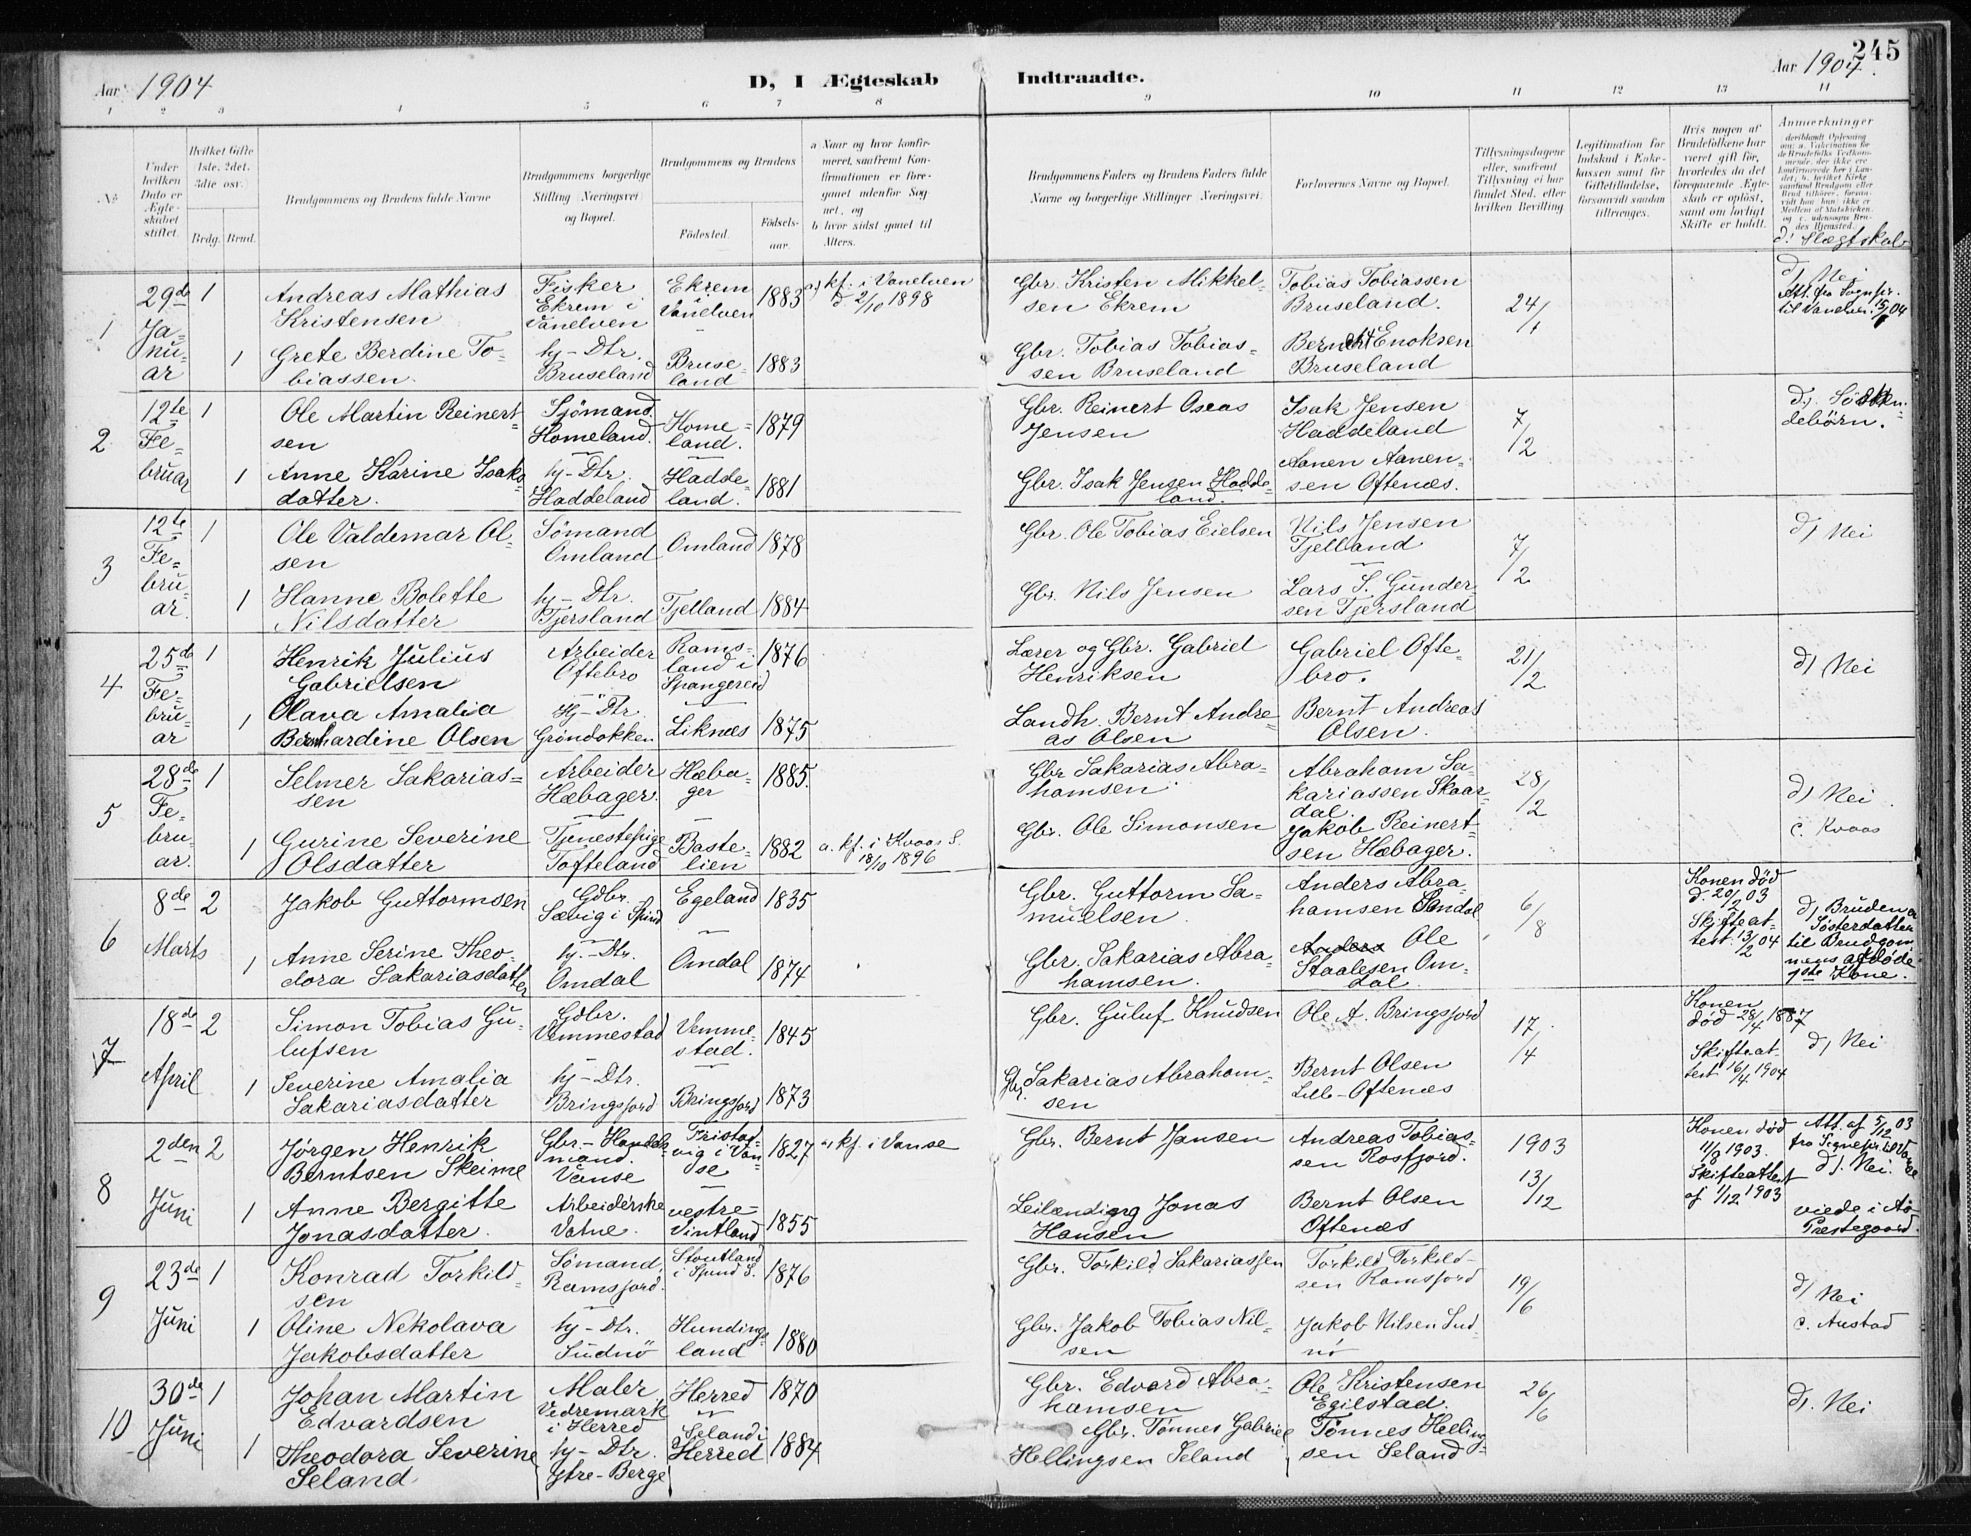 245
Aar 1904
D, I Ægteskab Indtraadte.
Aar 1904.
1 2 3 4 5 6 7 8 9 10 11 12 13 14
No
Under hvilken Dato er Ægteskabet stiftet.
Hvilket Gifte 1ste, 2det, 3die osv.
Brdg. Brud.
Brudgommens og Brudens fulde Navne
Brudgommens borgerlige Stilling Næringsvei og Bopæl.
Brudgommens og Brudens
Fødested.
Fødselsaar.
a Naar og hvor konfirmeret, saafremt Konfirmationen er foregaaet udenfor Sognet, og
b hvor sidst gaaet til Alters.
Brudgommens Faders og Brudens Faders fulde Navne og borgerlige Stillinger Næringsvei.
Forlovernes Navne og Bopæl.
Tillysningsdagene eller, saafremt Tillysning ei har fundet Sted, efter hvilken Bevilling
Legitimation for Indskud i Enkekassen samt for Giftetilladelse, forsaavidt saadan tiltrænges.
Hvis nogen af Brudefolkene har været gift før, hvorledes da det foregaaende Ægteskab er opløst, samt om lovligt Skifte er holdt.
Anmærkninger
d: Slægtskab
1
29de Januar
1
Andreas Mathias Kristensen
Fisker Ekrem i Vanelven
Ekrem Vanelven
1883
a) kf. i Vanelven 2/10 1898
Gbr. Kristen Mikkelsen Ekrem
Tobias Tobiassen Bruseland.
24/1
d) Nei
Att. fra Sognepr. til Vanelven 15/1 04
1
Grete Berdine Tobiassen.
hj-Dtr. Bruseland
Bruseland
1883
Gbr. Tobias Tobiassen Bruseland
Enoksen Bruseland
2
12te Februar
1
Ole Martin Reinertsen
Sjömand Homeland.
Homeland.
1879
Gbr. Reinert Oseas Jensen
Isak Jensen Haddeland
7/2
d). Södskendebörn.
1
Anne Karine Isaksdatter.
hj-Dtr. Haddeland
Haddeland.
1881
Gbr. Isak Jensen Haddeland.
Aanen Aanensen Oftenæs.
3
12te Februar
1
Ole Valdemar Olsen
Sömand Omland
Omland
1878
Gbr. Ole Tobias Eielsen
Nils Jensen Tjelland
7/2
d) Nei
1
Hanne Bolette Nilsdatter
hj-Dtr. Tjersland
Tjelland
1884
Gbr. Nils Jensen
Lars S. Gundersen Tjersland
4
25de Februar
1
Henrik Julius Gabrielsen
Arbeider Oftebro
Ramsland i Spangereid
1876
Lærer og Gbr. Gabriel Henriksen
Gabriel Oftebro.
21/2
d) Nei
1
Olava Amalia Bernhardine Olsen
Hj-Dtr. Gröndokken
Liknæs
1875
Landh. Bernt Andreas Olsen
Bernt Andreas Olsen.
5
28de Februar
1
Selmer Sakariassen
Arbeider Hæbager.
Hæbager
1885
Gbr Sakarias Abrahamsen
Abraham Sakariassen Skaardal.
28/2
d) Nei
c. Kvaas
1
Gurine Severine Olsdatter
Tjenestepige Tofteland
Bastelien
1882
a. kf. i Kvaas S. 18/10 1896
Gbr. Ole Simonsen
Jakob Reinertsen Hæbager.
6
8de Marts
2
Jakob Guttormsen
Gdbr. Sævig i Spind
Egeland
1835
Gbr. Guttorm Samuelsen.
Anders Abrahamsen Sandal
6/8
Konen död d. 20/2 03 Skifteattest. 13/2 04
d) Bruden er Søsterdatter til Brudgommens afdøde 1ste Kone.
1
Anne Serine Theodora Sakariasdatter
hj.-Dtr. Omdal
Omdal
1874
Gbr. Sakarias Abrahamsen.
Anders Ole Staalesen Omdal
7
18de April
2
Simon Tobias Gulufsen
Gdbr. Vemmestad
Vemmestad.
1845
Gbr. Guluf Knudsen
Ole A. Bringsfjord
17/4
Konen död 28/4 1887 Skifteattest 16/4 1904
d) Nei
1
Severine Amalia Sakariasdatter
hj-Dtr. Bringsfjord
Bringsfjord
1873
Gbr. Sakarias Abrahamsen
Bernt Olsen Lille-Oftenæs
8
2den Juni
2
Jørgen Henrik Berntsen Skeime
Gbr-Handelsmand. Vanse
Tristadvig i Vanse
1827
a, kf. i Vanse
Gbr. Bernt Jansen
Andreas Tobiassen Rosfjord.
1903
13/12
Konen död 11/8 1903. Skifteattest af 1/12 1903
Att. af 5/12 03 fra Sognepr. til Vanse
d). Nei.
viede i Aa Præstegaard.
1
Anne Bergitte Jonasdatter.
Arbeiderske Vatne.
vestre-Vintland
1855
Leilænding Jonas Hansen
Bernt Olsen Oftenæs
9
23de Juni
1
Konrad Torkildsen
Sömand, Ramsfjord.
Stoutland i Spind S.
1876
Gbr. Torkild Sakariassen
Torkild Torkildsen Ramsfjord
19/6
d) Nei
c. Austad
1
Oline Nekolava Jakobsdatter
hj-Dtr. Sudnö
Hundingsland
1880
Gbr. Jakob Tobias Nilsen
Jakob Nilsen Sudnö
10
30de Juni
1
Johan Martin Edvardsen
Maler Vedremark i Herred
Herred
1870
Gbr. Edvard Abrahamsen
Ole Kristensen Egilstad.
26/6
d). Nei
1
Theodora Severine Seland
hj-Dtr. Ytre-Berge
Seland i Herred
1884
Gbr. Tønnes Gabriel Hellingsen Seland
Tønnes Hellingsen Seland